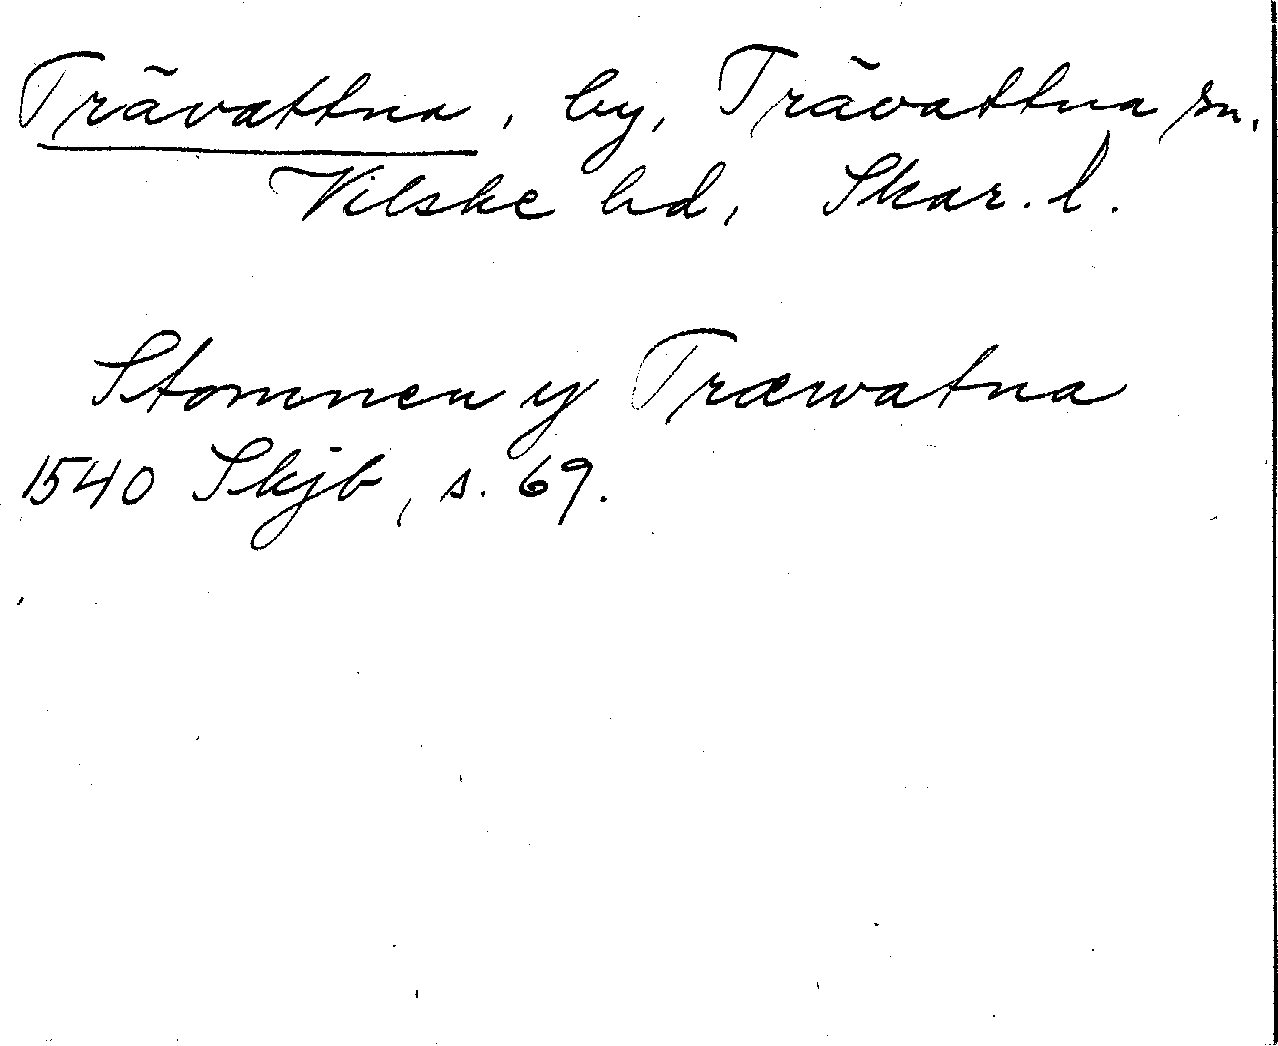 Trävattna, by, Trävattna sn.
Vilske hd, Skar. l.
Stommen y Træwatna
1540 Skjb, s. 69.